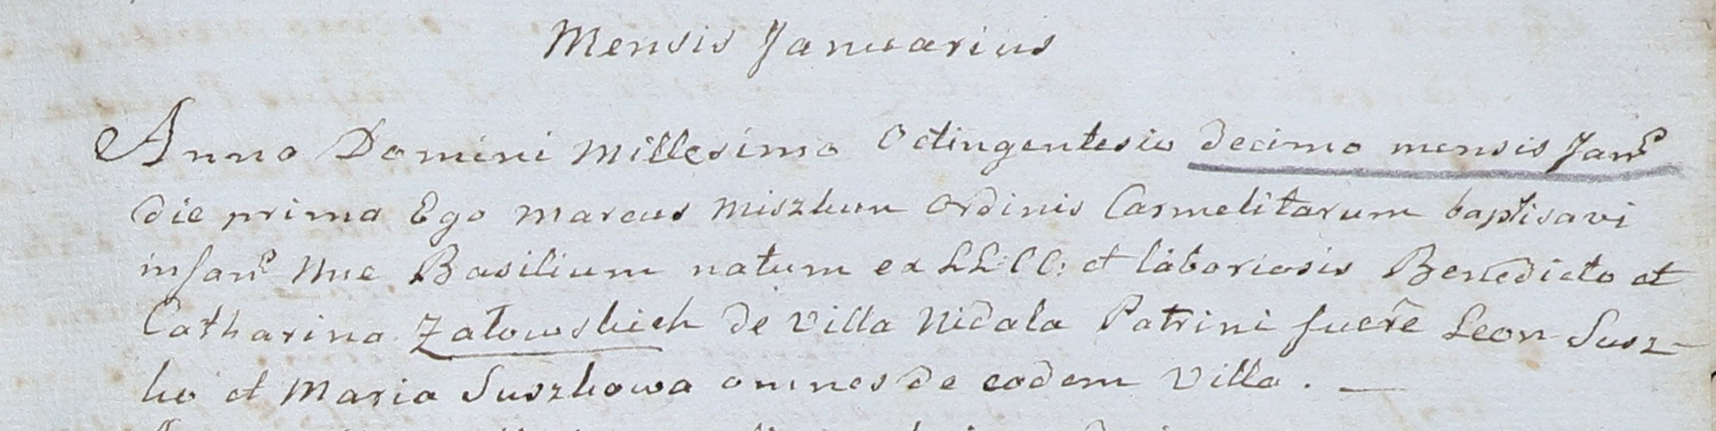 Mensis Januarius
Anno Domini Millesimo Octingentesio decimo mensis Janr̃
die prima Ego Marcus Miszkun Ordinis Carmelitarum baptisavi
infanr̃ nne Basilium natum ex LL: CC: et laboriosis Benedicto et
Catharina Załowskich de Villa Nidala Patrini fuer̃e Leon Susz-
ko et Maria Suszkowa omnes de eodem Villa. —